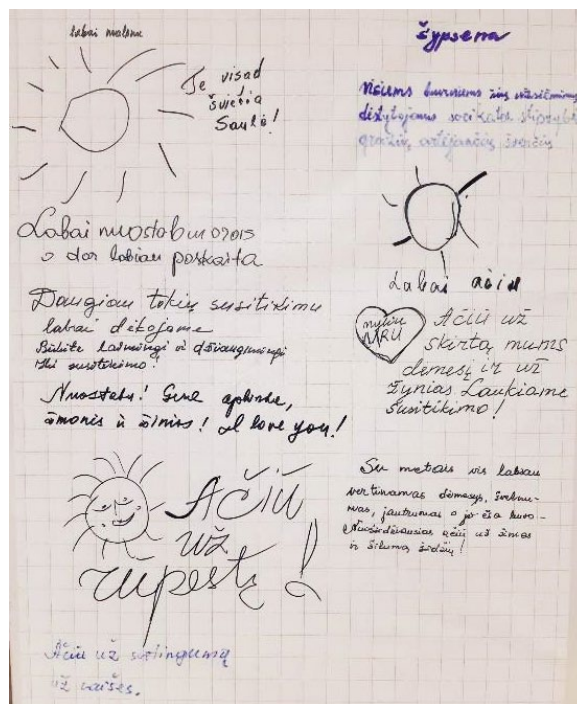 labai malonu
Te visad
šviečia
Saulė!
Labai nuostabus oras
o dar labiau paskaita
Daugiau tokių susitikimų
labai dėkojame
Būkite laimingi ir džiaugsmingi
Iki susitikimo!
Nuostabu! Gera aplinka,
žmonės ir žinios! I love you!
AČIŪ
už
rūpestį!
Ačiū už svetingumą
už vaišes.
šypsena
Visiems buvusiems
dėstytojams sveikatos stiprybės
gražių artėjančių švenčių
Labai ačiū
myliu
MRU
Ačiū už
skirtą mums
dėmesį ir už
žynias Laukiame
susitikimo!
Su metais vis labiau
vertinamas dėmesys,
jautrumas o jo čia buvo -
Nuoširdžiausias ačiū už žinias
ir šilumą širdžių!